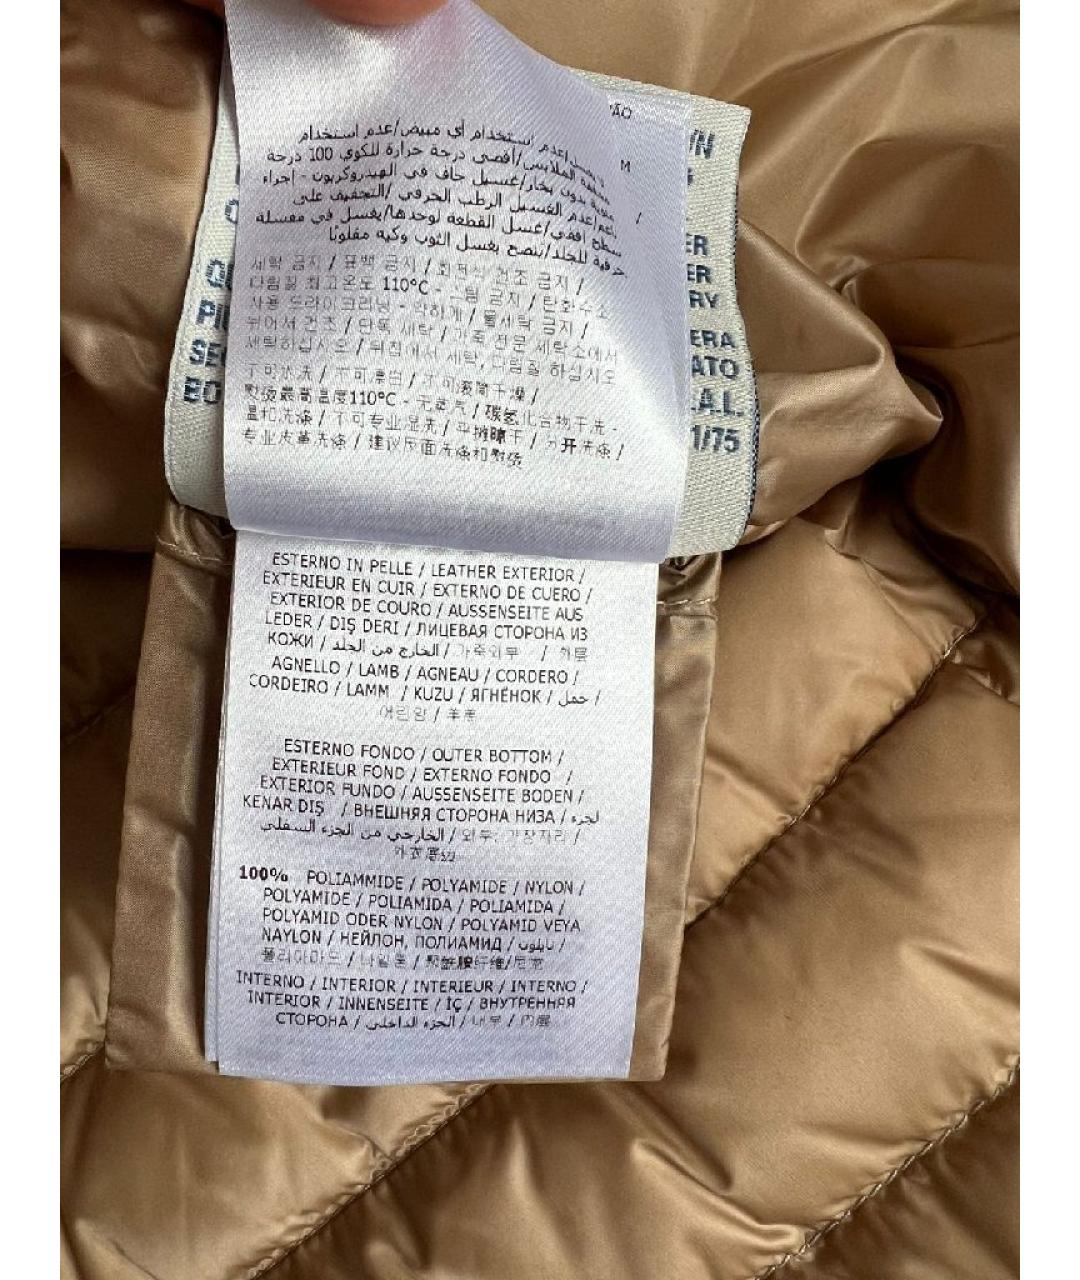 ÇÃO
M
VN
ER
ER
RY
ERA
ATO
.A.L.
1/75
PI
SE
BO
استخدام أي مبيض/عدم استخدام
الملابس/أقصى درجة حرارة للكوي 100 درجة
بدون بخار/غسيل جاف في الهيدروكربون - إجراء
عدم الغسيل الرطب الحرفي/التجفيف على
سطح أفقي/غسل القطعة لوحدها/يغسل في مغسلة
حرفية للجلد/ينصح بغسل الثوب وكيه مقلوبًا
세탁 금지 / 표백 금지 / 회전식 건조 금지 /
다림질 최고온도 110°C - 스팀 금지 / 탄화수소
사용 드라이크리닝 - 약하게 / 물세탁 금지 /
뉘어서 건조 / 단독 세탁 / 가죽 전문 세탁소에서
세탁하십시오 / 뒤집어서 세탁, 다림질 하십시오
不可水洗 / 不可漂白 / 不可滚筒干燥 /
熨烫最高温度110°C - 无蒸气 / 碳氢化合物干洗 -
温和洗涤 / 不可专业湿洗 / 平摊晾干 / 分开洗涤 /
专业皮革洗涤 / 建议反面洗涤和熨烫
ESTERNO IN PELLE / LEATHER EXTERIOR /
EXTERIEUR EN CUIR / EXTERNO DE CUERO /
EXTERIOR DE COURO / AUSSENSEITE AUS
LEDER / DIŞ DERI / ЛИЦЕВАЯ СТОРОНА ИЗ
КОЖИ / الخارج من الجلد / 가죽외부 / 外层
AGNELLO / LAMB / AGNEAU / CORDERO /
CORDEIRO / LAMM / KUZU / ЯГНЁНОК / حمل /
어린양 / 羊羔
ESTERNO FONDO / OUTER BOTTOM /
EXTERIEUR FOND / EXTERNO FONDO /
EXTERIOR FUNDO / AUSSENSEITE BODEN /
KENAR DIŞ / ВНЕШНЯЯ СТОРОНА НИЗА / لجزء
الخارجي من الجزء السفلي / 외부: 가장자리 /
外衣底边
100% POLIAMMIDE / POLYAMIDE / NYLON /
POLYAMIDE / POLIAMIDA / POLIAMIDA /
POLYAMID ODER NYLON / POLYAMID VEYA
NAYLON / НЕЙЛОН, ПОЛИАМИД / نايلون /
폴리아마드 / 나일론 / 聚酰胺纤维/尼龙
INTERNO / INTERIOR / INTERIEUR / INTERNO /
INTERIOR / INNENSEITE / İÇ / ВНУТРЕННЯЯ
СТОРОНА / الجزء الداخلي / 내부 / 内层